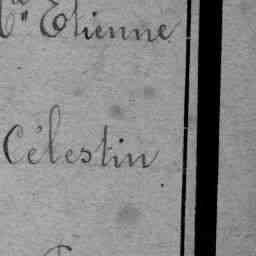 Etienne
Célestin